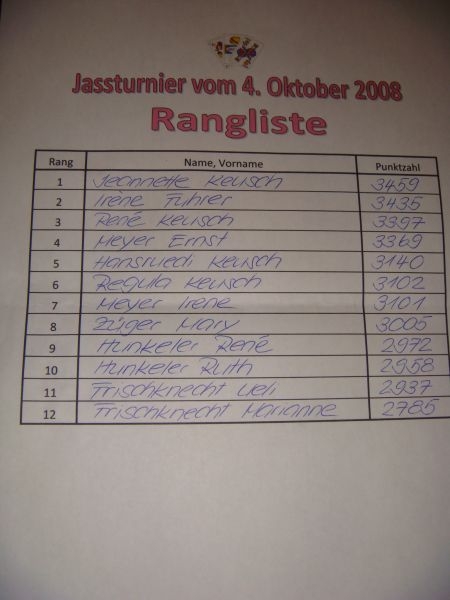 Jassturnier vom 4. Oktober 2008
Rangliste
Rang Name, Vorname Punktzahl
1 Jeannette Keusch 3459
2 Irène Fuhrer 3435
3 René Keusch 3397
4 Meyer Ernst 3369
5 Hansruedi Keusch 3140
6 Regula Keusch 3102
7 Meyer Irene 3101
8 Züger Mary 3005
9 Hunkeler René 2972
10 Hunkeler Ruth 2958
11 Frischknecht Ueli 2937
12 Frischknecht Marianne 2785